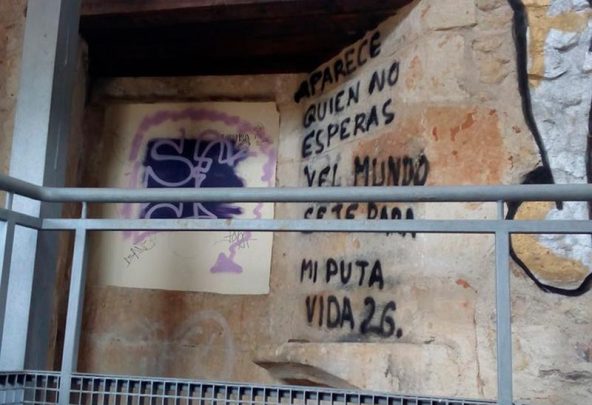 APARECE
QUIEN NO
ESPERAS
Y EL MUNDO
SE TE PARA
MI PUTA
VIDA 26.